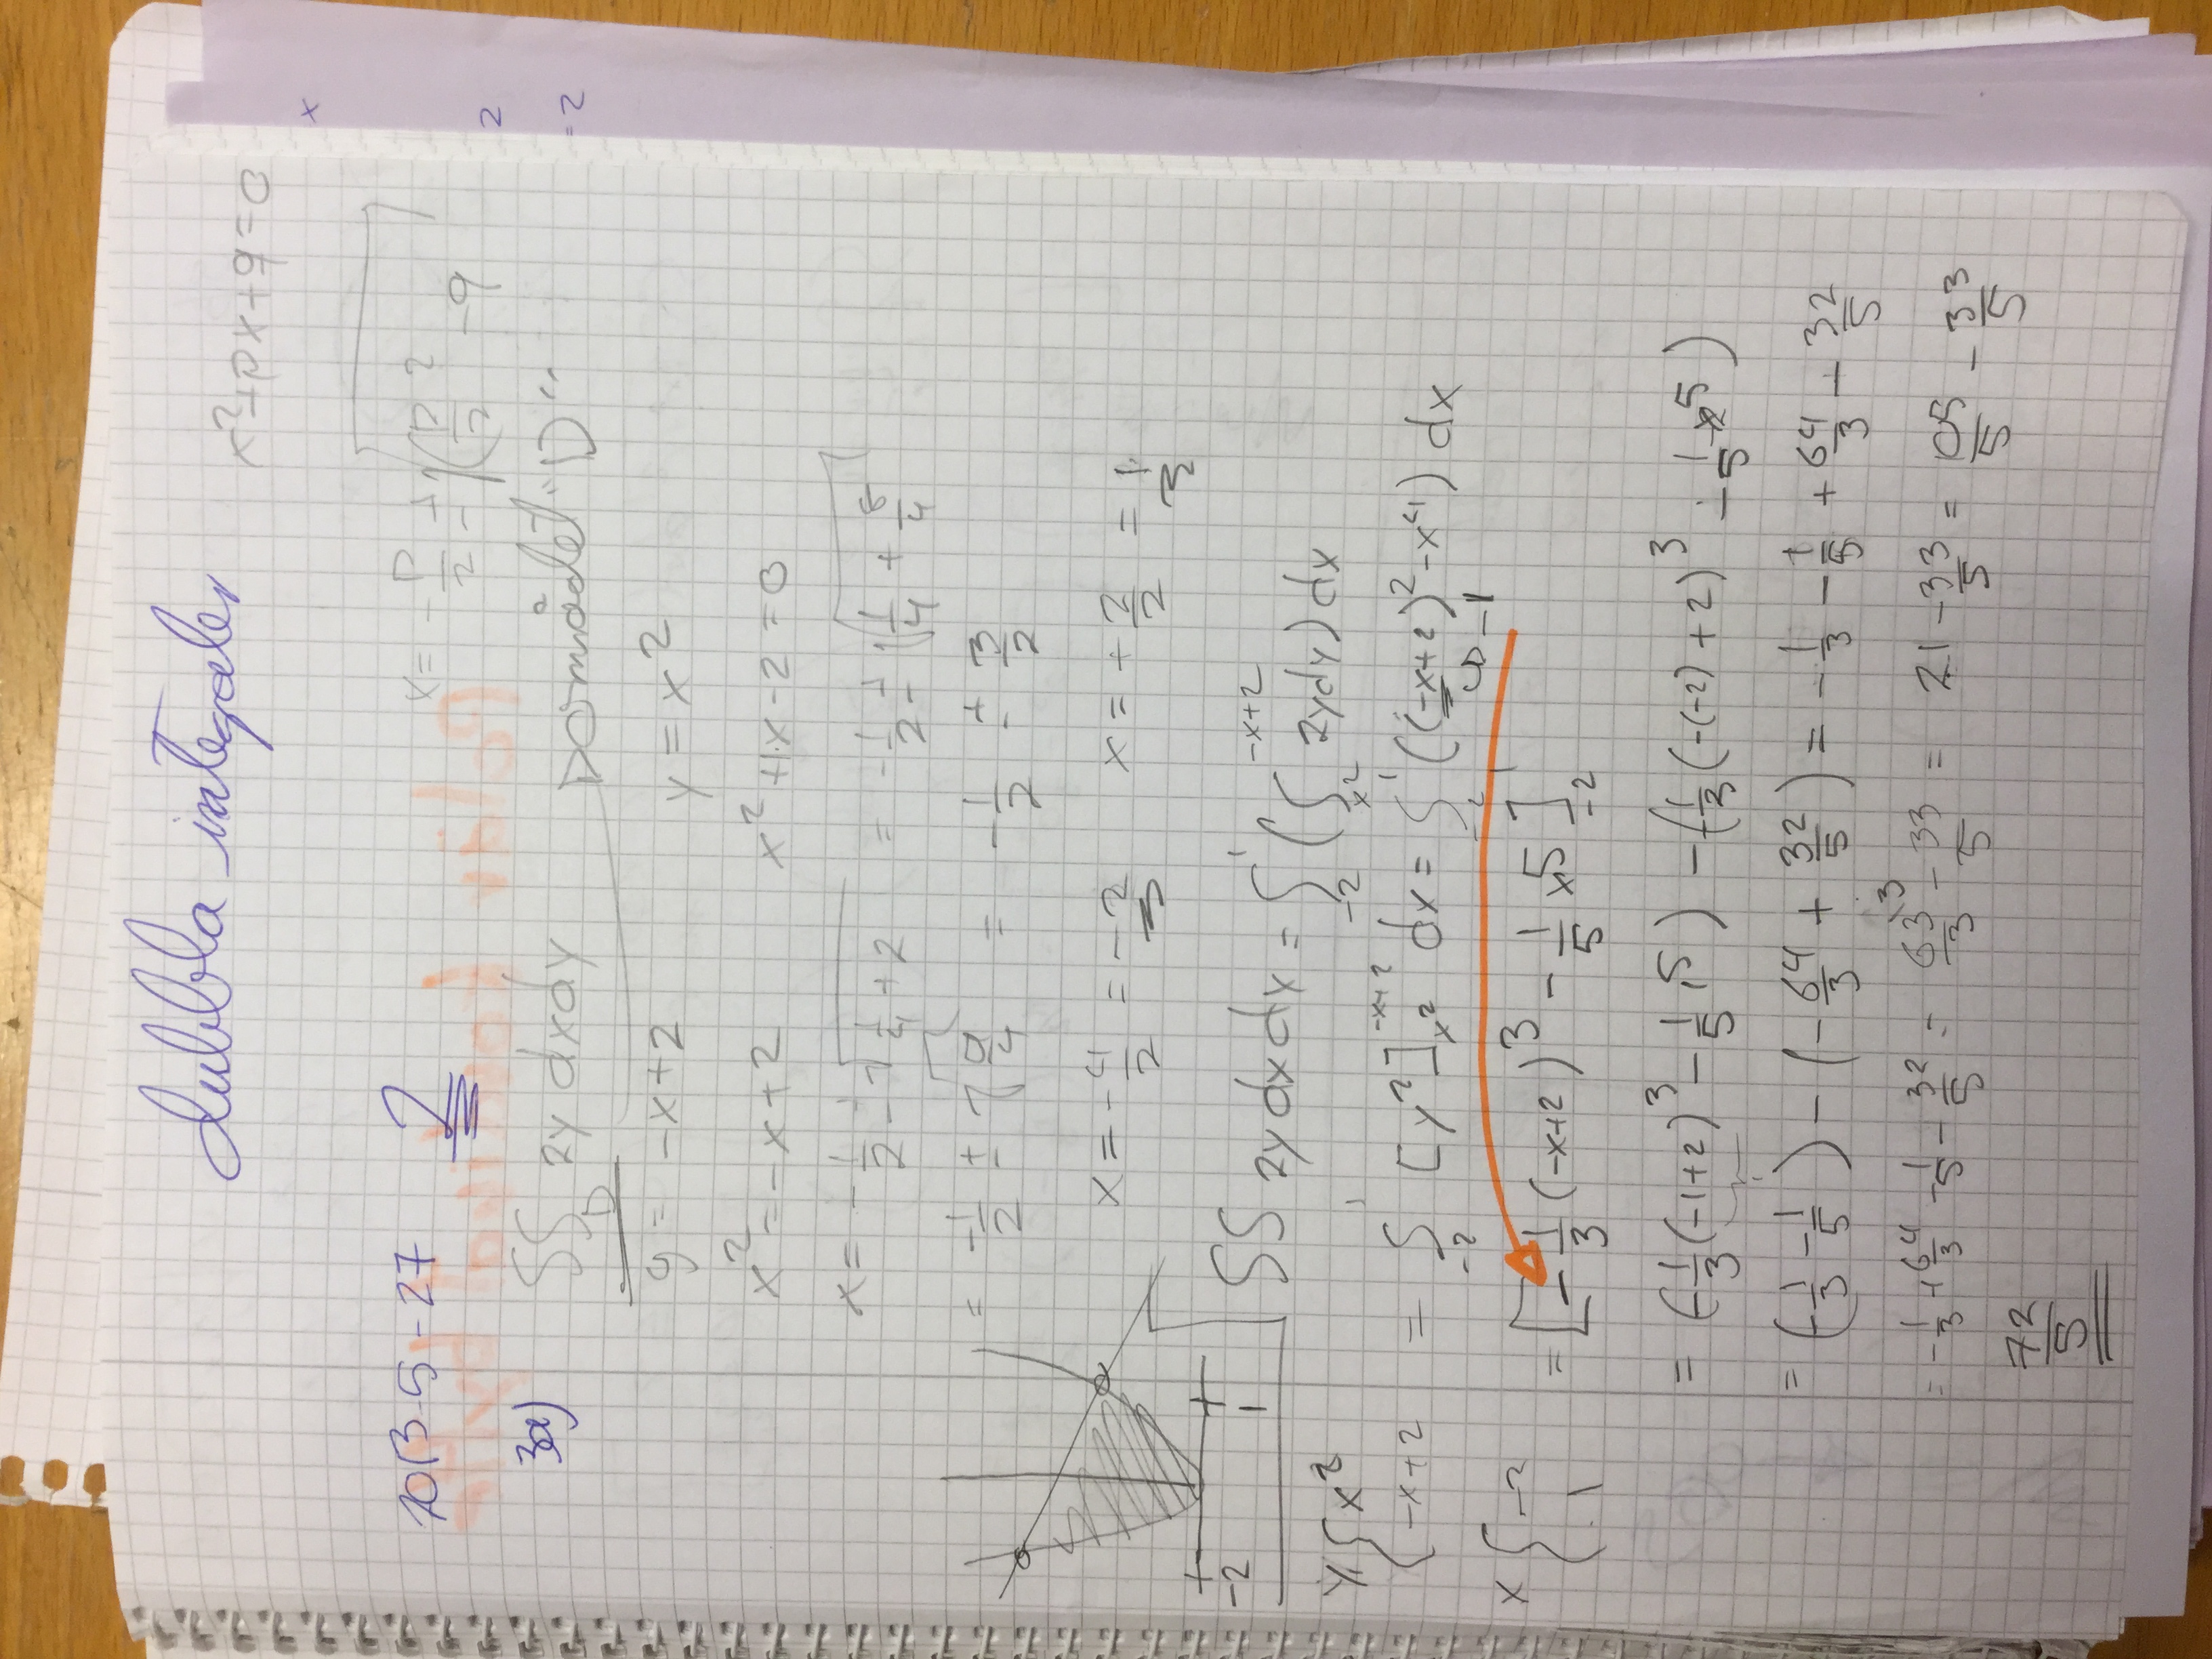 dubbla integraler
x²+px+q=0
x = -p/2 ± √((p/2)² - q
2013-5-27 2
Polär
3a) ∫∫_D 2y dxdy området "D"
y = -x+2 y = x²
x² = -x+2 x² +1·x -2 = 0
x = -1/2 ± √(1/4 + 2) = -1/2 ± √(1/4 + 8/4)
= -1/2 ± √(9/4) = -1/2 ± 3/2
x = -4/2 = -2 x = +2/2 = 1
-2 1
∫∫ 2y dx dy = ∫_{-2}^{1} (∫_{x²}^{-x+2} 2y dy) dx
y { x²
-x+2
= ∫_{-2}^{1} [y²]_{x²}^{-x+2} dx = ∫_{-2}^{1} ((-x+2)² - x⁴) dx
-1
x { -2
1
= [-1/3 (-x+2)³ - 1/5 x⁵]_{-2}^{1}
= (-1/3 (-1+2)³ - 1/5 · 1⁵) - (-1/3 (-(-2)+2)³ - 1/5 · -2⁵)
= (-1/3 - 1/5) - (-64/3 + 32/5) = -1/3 - 1/5 + 64/3 - 32/5
= -1/3 + 64/3 - 1/5 - 32/5 = 63/3 - 33/5 = 21 - 33/5 = 105/5 - 33/5
72/5
x
2
=2